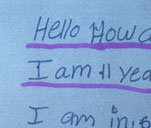 Hello How
I am 11 yea
I am in